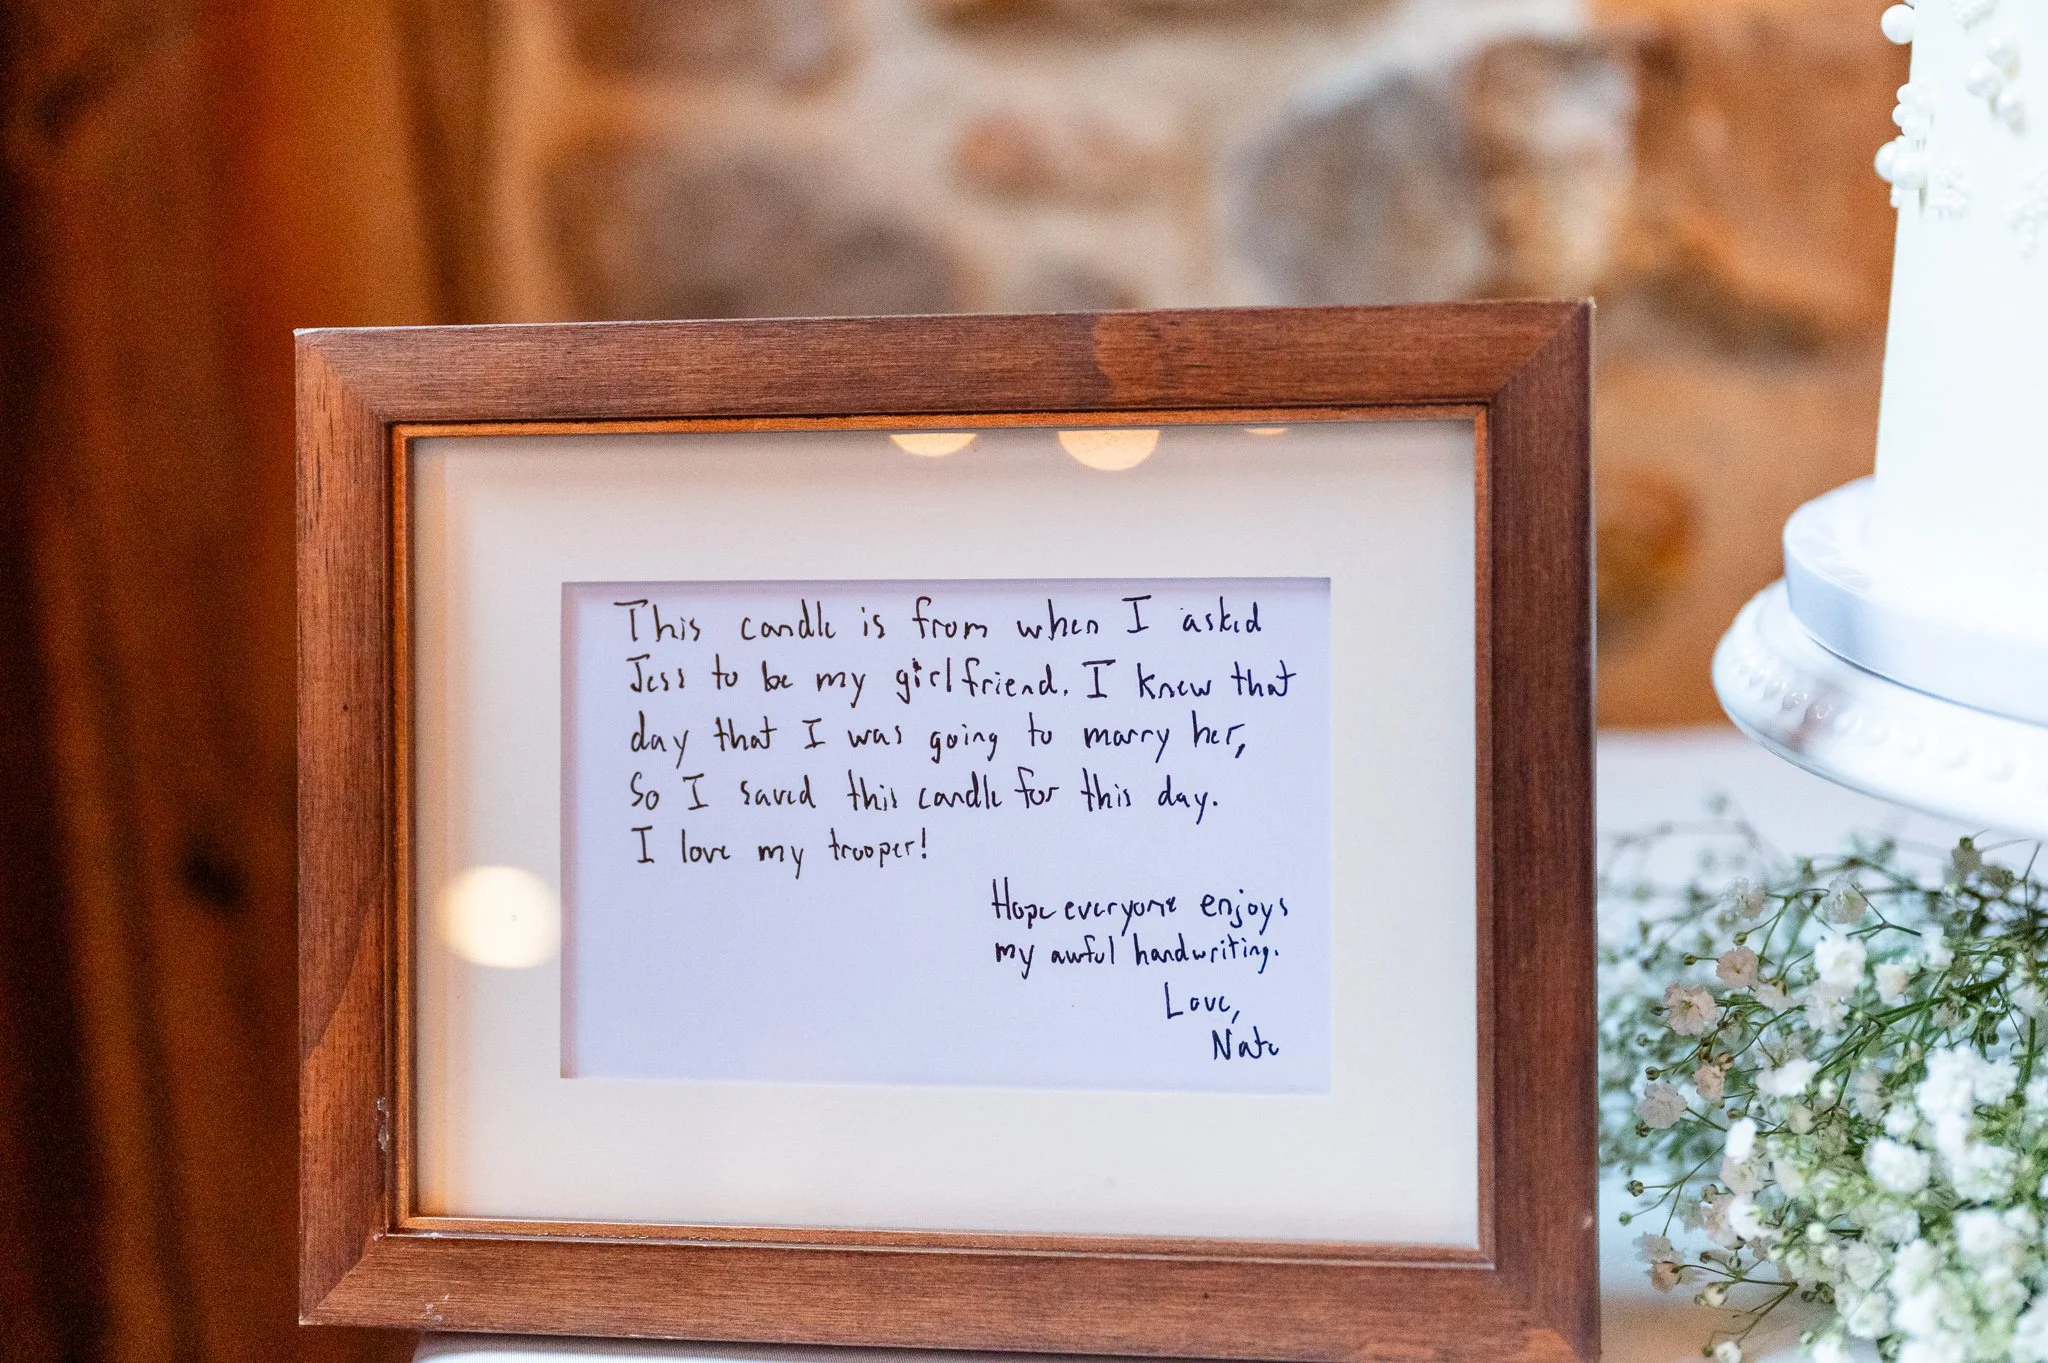 This candle is from when I asked
Jess to be my girlfriend. I knew that
day that I was going to marry her,
So I saved this candle for this day.
I love my trooper!
Hope everyone enjoys
my awful handwriting.
Love,
Nate